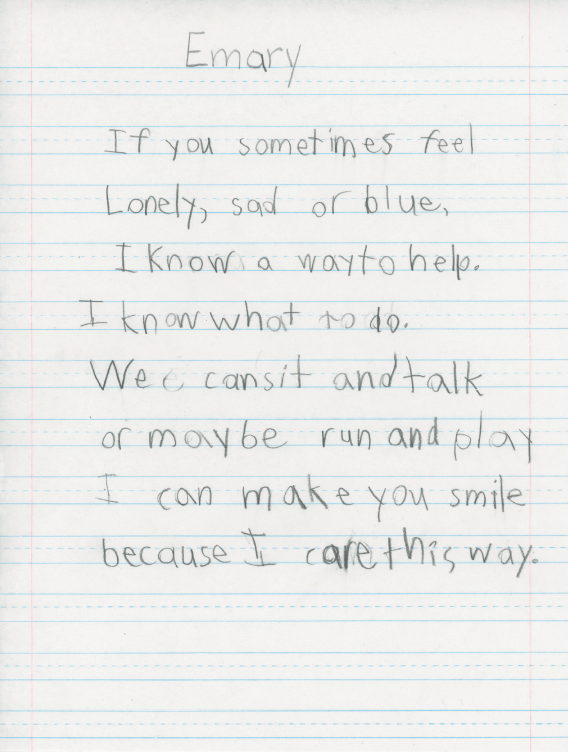 Emary
If you sometimes feel
Lonely, sad or blue,
I know a way to help.
I know what to do.
We can sit and talk
or maybe run and play
I can make you smile
because I care this way.